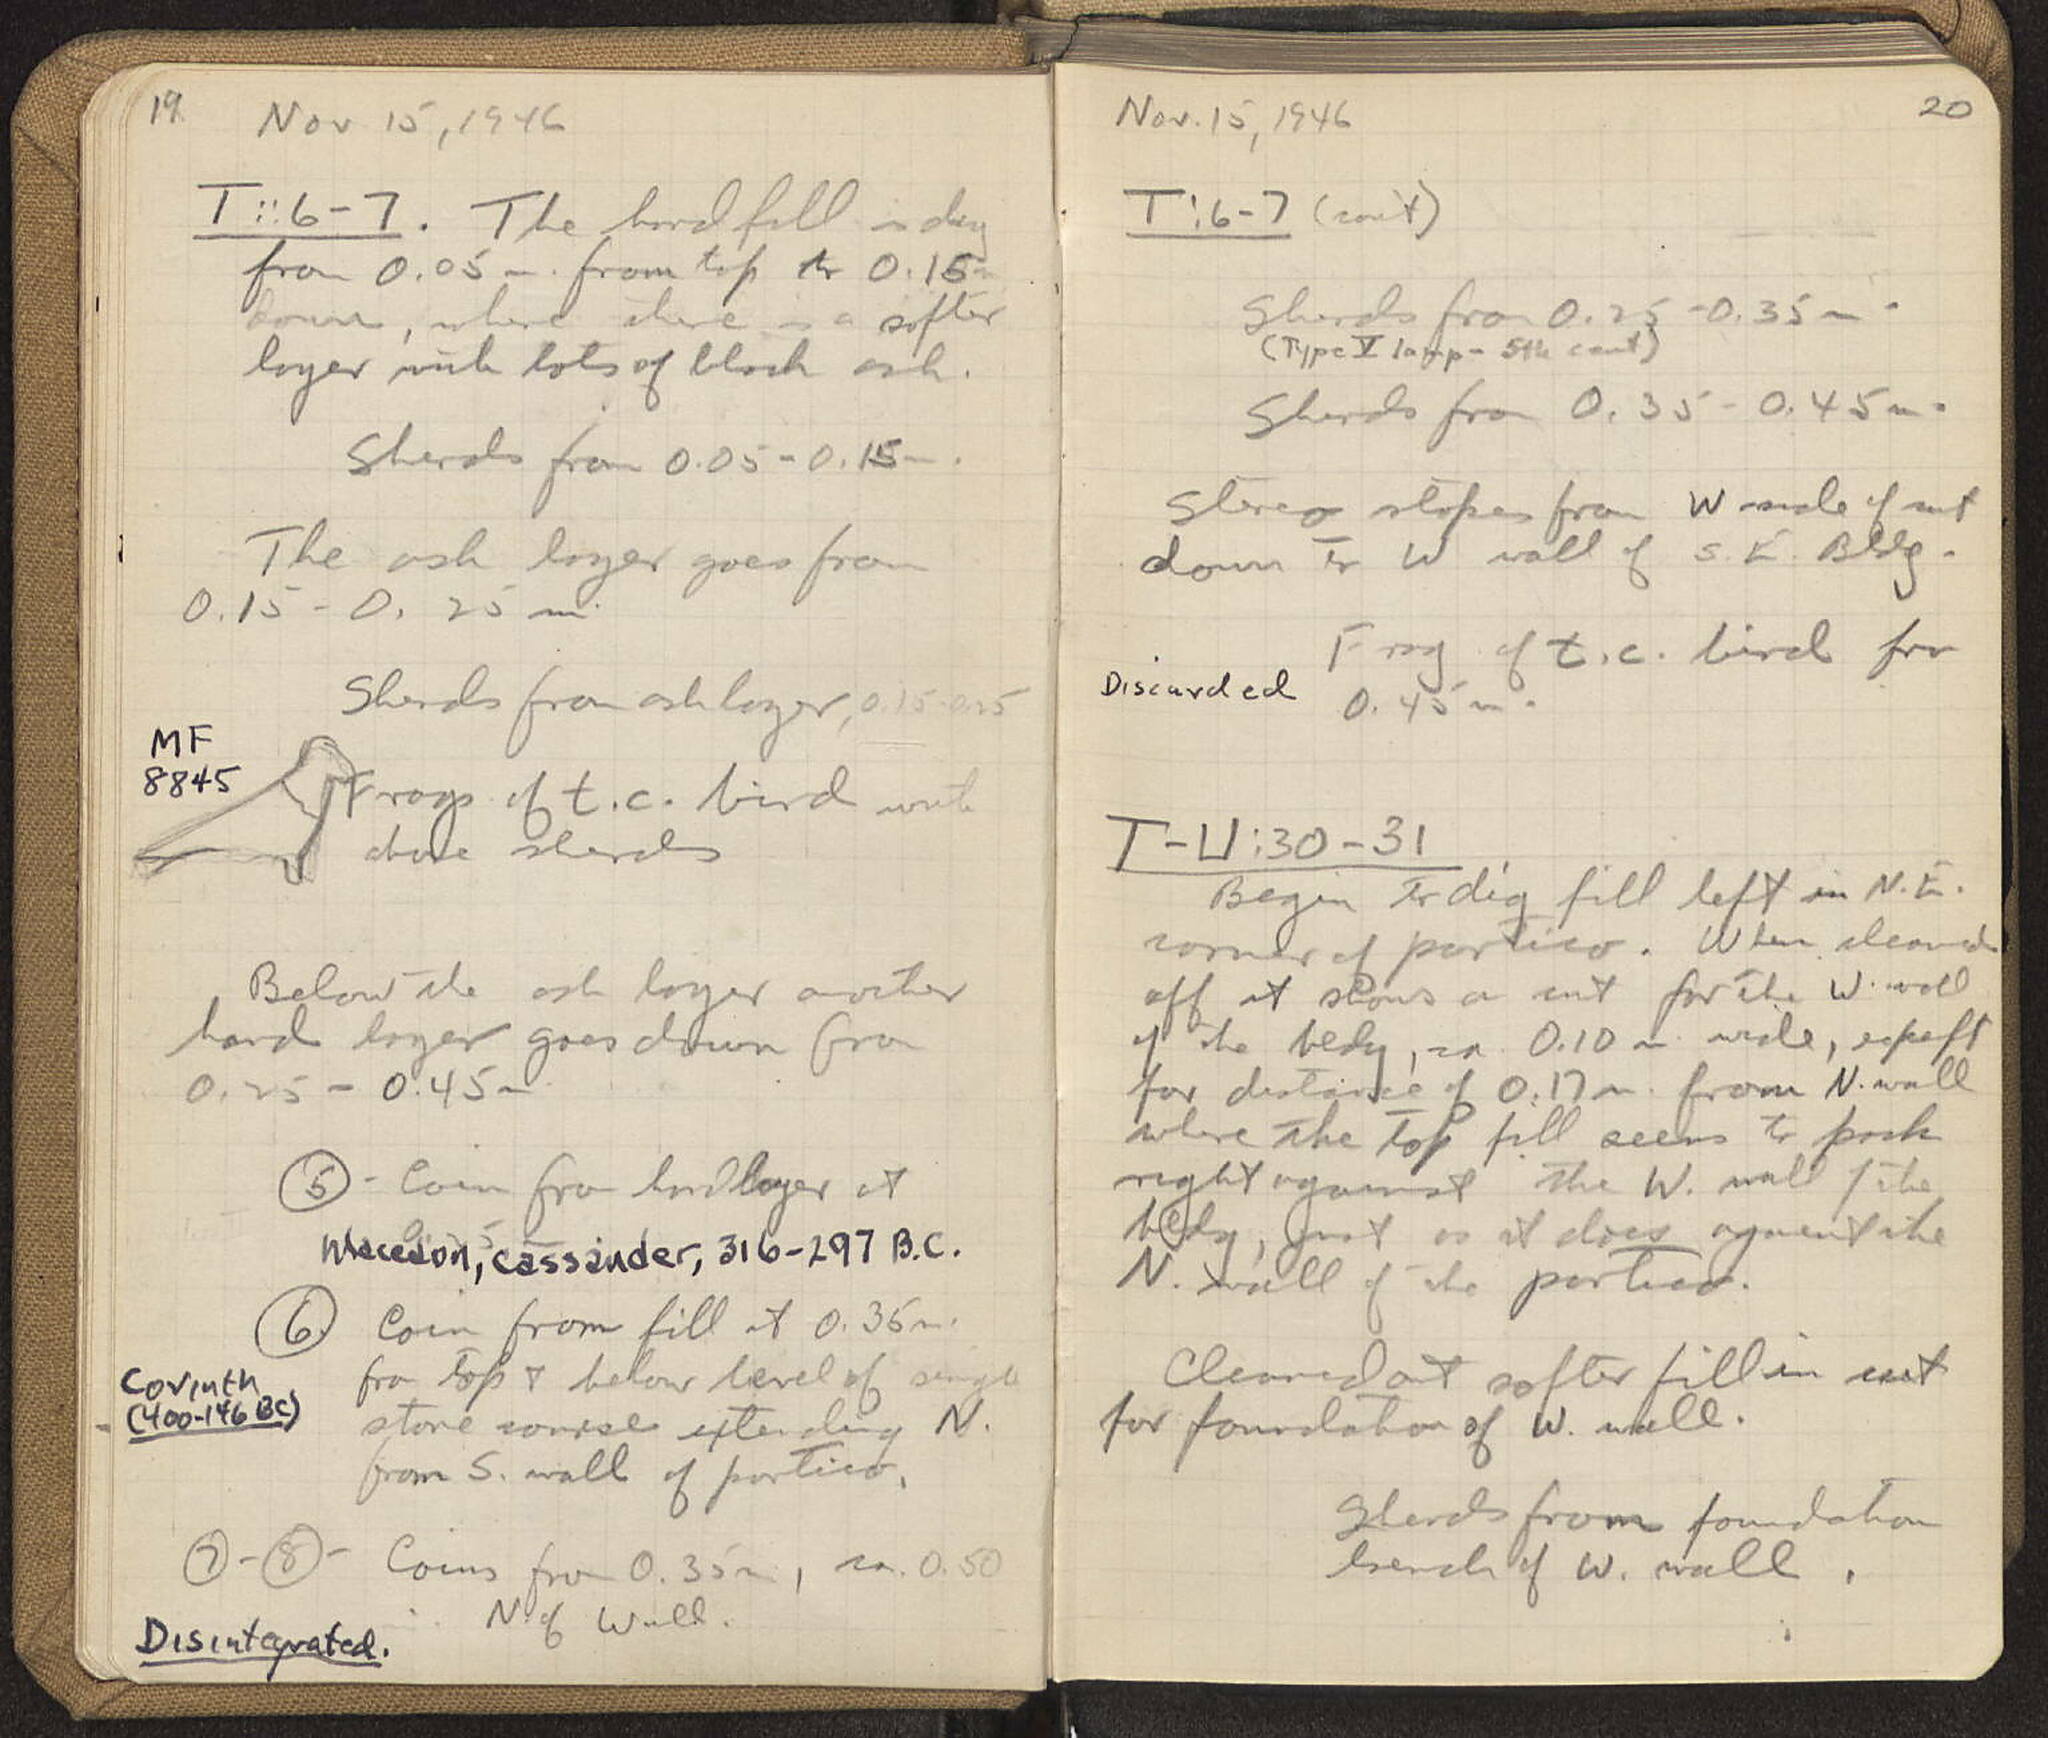 19
Nov 15, 1946
T::6-7. The hard fill is dug
from 0.05 m. from top to 0.15 m
down, where there is a softer
layer with lots of black ash.
Sherds from 0.05-0.15 m.
The ash layer goes from
0.15-0.25 m.
Sherds from ash layer, 0.15-0.25
MF
8845
Frags of t.c. bird with
above sherds
Below the ash layer another
hard layer goes down from
0.25 - 0.45 m
5 - Coin from hard layer at
Macedon, Cassander, 316-297 B.C.
6 Coin from fill at 0.35 m.
from top + below level of single
stone course extending N.
from S. wall of portico.
Corinth
(400-146 BC)
7-8- Coins from 0.35 m, ca. 0.50
N. of Wall.
Disintegrated.
Nov. 15, 1946
20
T:6-7 (con't)
Sherds from 0.25-0.35 m.
(Type V lamp - 5th cent)
Sherds from 0.35-0.45 m.
Stereo slopes from W side of cut
down to W wall of S.E. Bldg.
Frag of t.c. bird from
0.45 m.
Discarded
T-U:30-31
Begin to dig fill left in N.E.
corner of portico. When cleaned
off it shows a cut for the W. wall
of the bldg, ca. 0.10 m. wide, expept
for distance of 0.17 m. from N. wall
where the top fill seems to pack
right against the W. wall of the
bldg, just as it does against the
N. wall of the portico.
Cleaned out softer fill in cut
for foundation of W. wall.
Sherds from foundation
trench of W. wall.